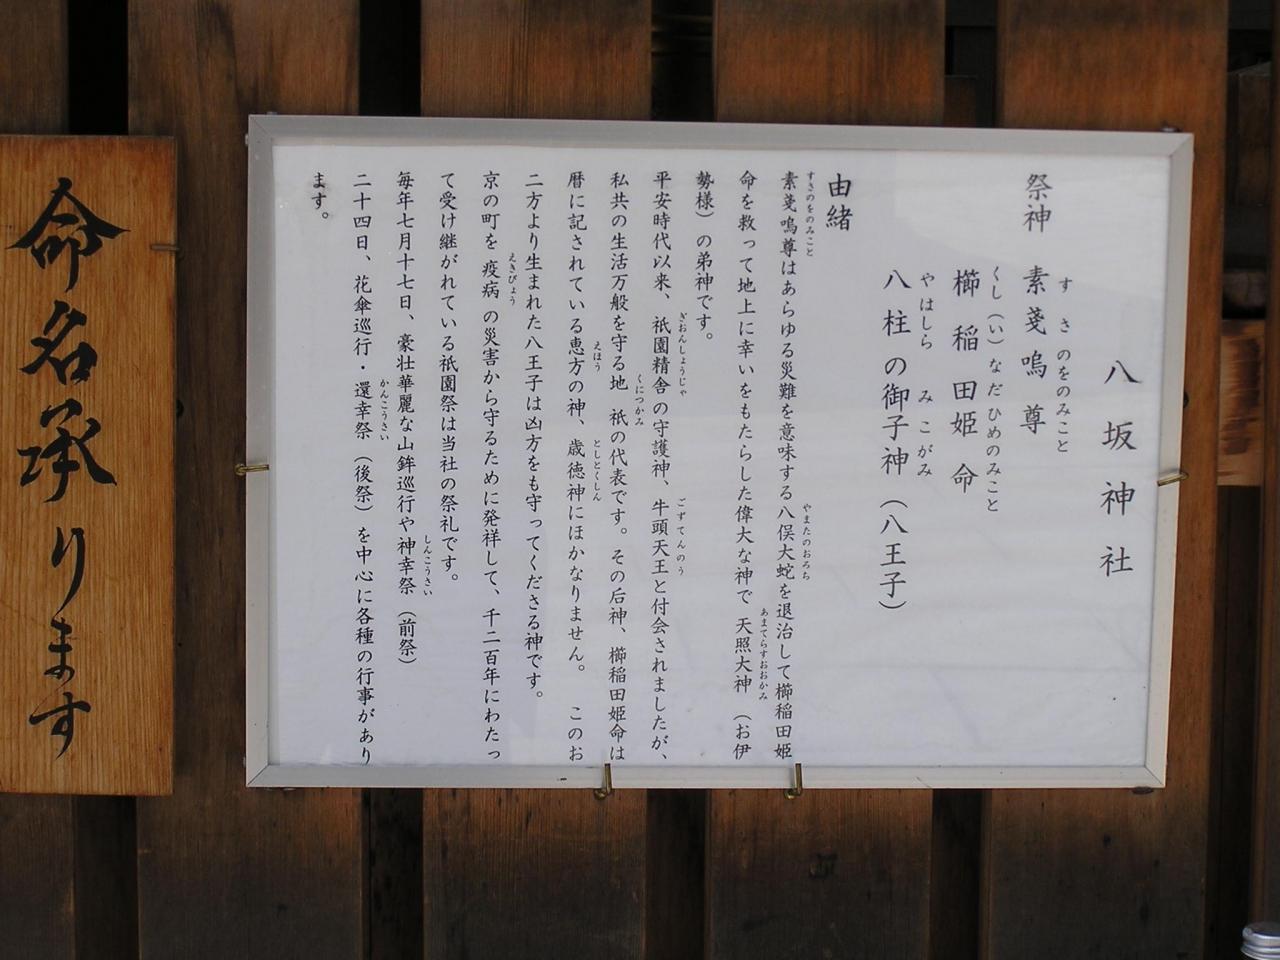 八坂神社
祭神　素戔嗚尊
すさのをのみこと
櫛稲田姫命
くし（い）なだひめのみこと
八柱の御子神（八王子）
やはしら　みこがみ
由緒
素戔嗚尊はあらゆる災難を意味する八俣大蛇を退治して櫛稲田姫
すさのをのみこと　やまたのおろち
命を救って地上に幸いをもたらした偉大な神で　天照大神　（お伊
あまてらすおおかみ
勢様）の弟神です。
平安時代以来、祇園精舎の守護神、牛頭天王と付会されましたが、
ぎおんしょうじゃ　ごずてんのう
私共の生活万般を守る地　祇の代表です。その后神、櫛稲田姫命は
くにつかみ
暦に記されている恵方の神、歳徳神にほかなりません。　このお
えほう　としとくしん
二方より生まれた八王子は凶方をも守ってくださる神です。
京の町を　疫病　の災害から守るために発祥して、千二百年にわたっ
えきびょう
て受け継がれている祇園祭は当社の祭礼です。
毎年七月十七日、豪壮華麗な山鉾巡行や神幸祭（前祭）
しんこうさい
二十四日、花傘巡行・還幸祭（後祭）を中心に各種の行事があり
かんこうさい
ます。
命名承ります